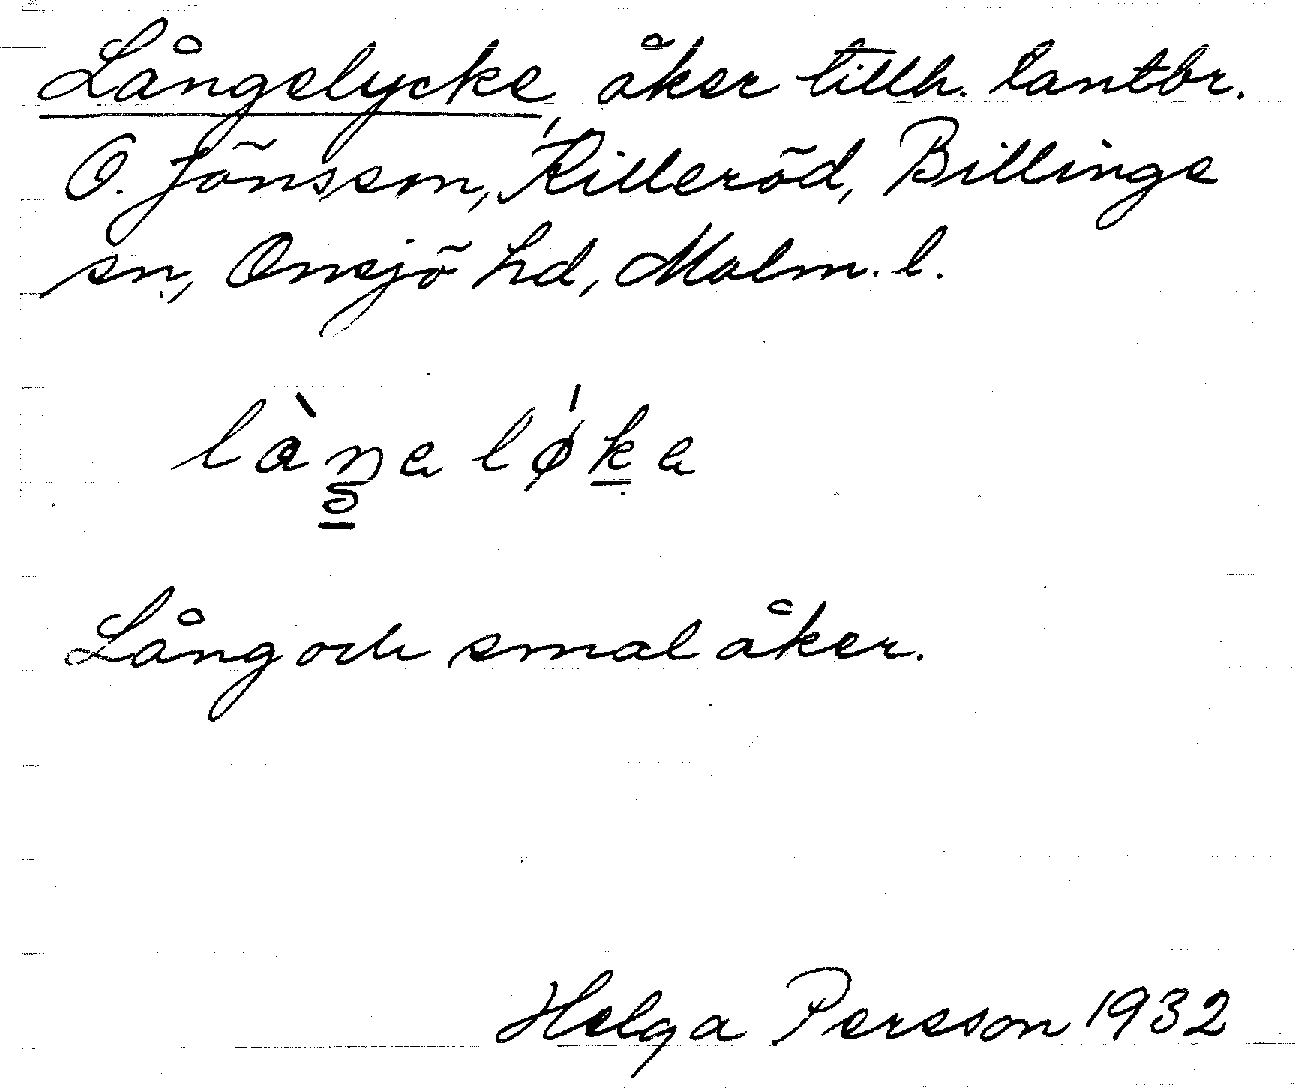 Långelycke, åker tillh. lantbr.
O. Jönsson, Killeröd, Billinge
sn, Onsjö hd, Malm. l.
Lång och smal åker.
Helga Persson 1932